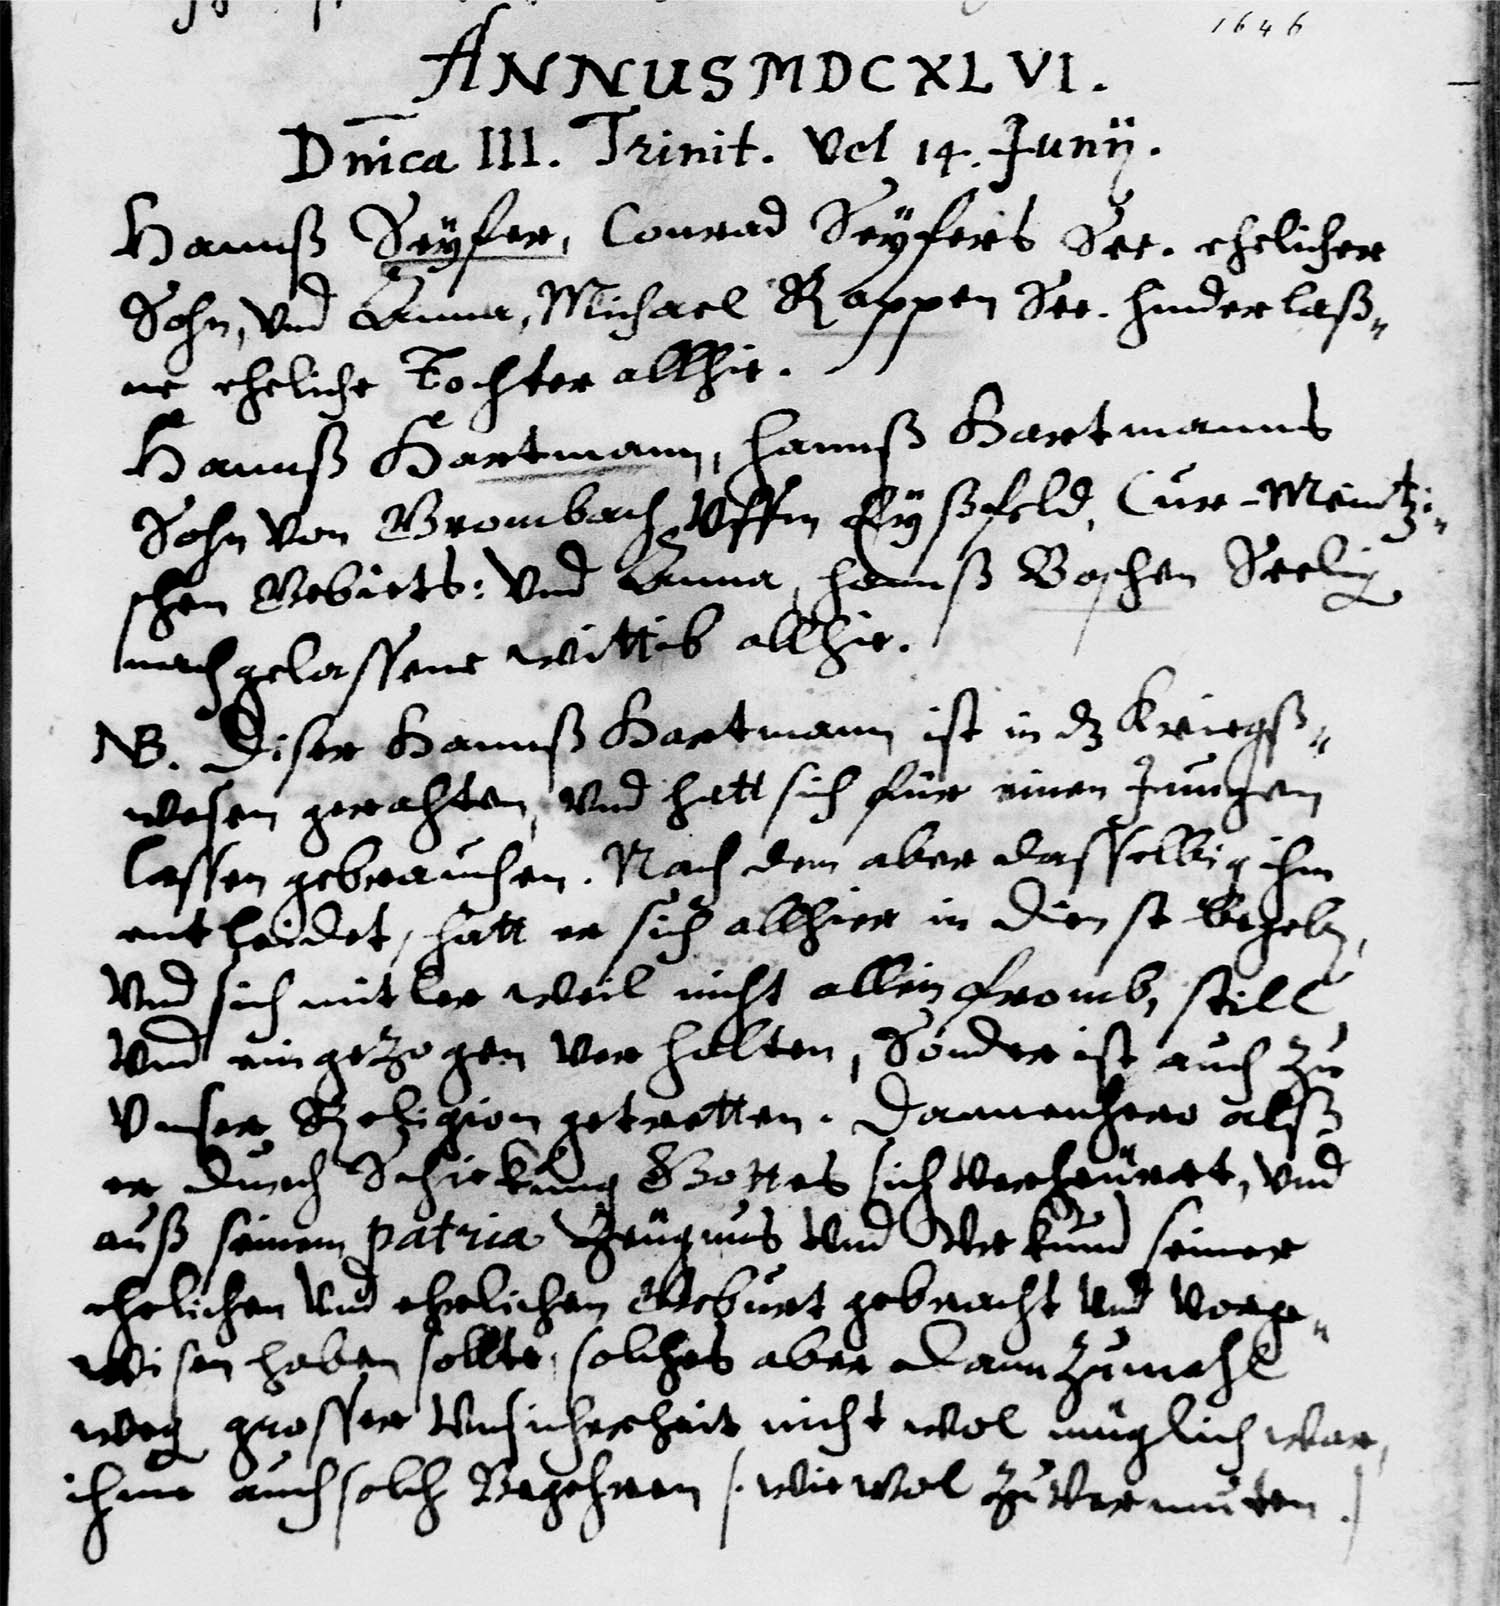 1646
ANNUS MDCXLVI.
Dnica III. Trinit. Vel 14. Junÿ.
Hannß Seÿfer, Conrad Seÿfers See. ehelicher
Sohn, vnd Anna, Michael Rappen See. hinderlaß„
ne eheliche Tochter allhie.
Hannß Hartmann, Hannß Hartmanns
Sohn von Brombach vffm Eÿßfeld, Cur-Meintzi„
schen Gebiets: vnd Anna, Hannß Boschen Seelig
nachgelassene wittib allhie.
NB. Diser Hannß Hartmann ist in dz Kriegß„
wesen gerahten, vnd hatt sich für einen Jungen
lassen gebrauchen. Nach dem aber dasselbig ihm
entleidet, hatt er sich allhier in Dienst begeben,
vnd sich mitler weil nicht allein fromb, still
vnd eingezogen verhalten, Sonder ist auch zu
vnser Religion getretten. Dannenhero alß
er durch Schickung Gottes sich verheürat, vnd
auß seinem patria Zeügnus vnd Vrkund seiner
ehelichen vnd ehrlichen Geburt gebracht vnd vorge„
wisen haben sollte, solches aber dannzumahl
weg grosser vnsicherheit nicht wol müglich war,
ihme auch solch Begehren /. wiewol zu vermuten ./